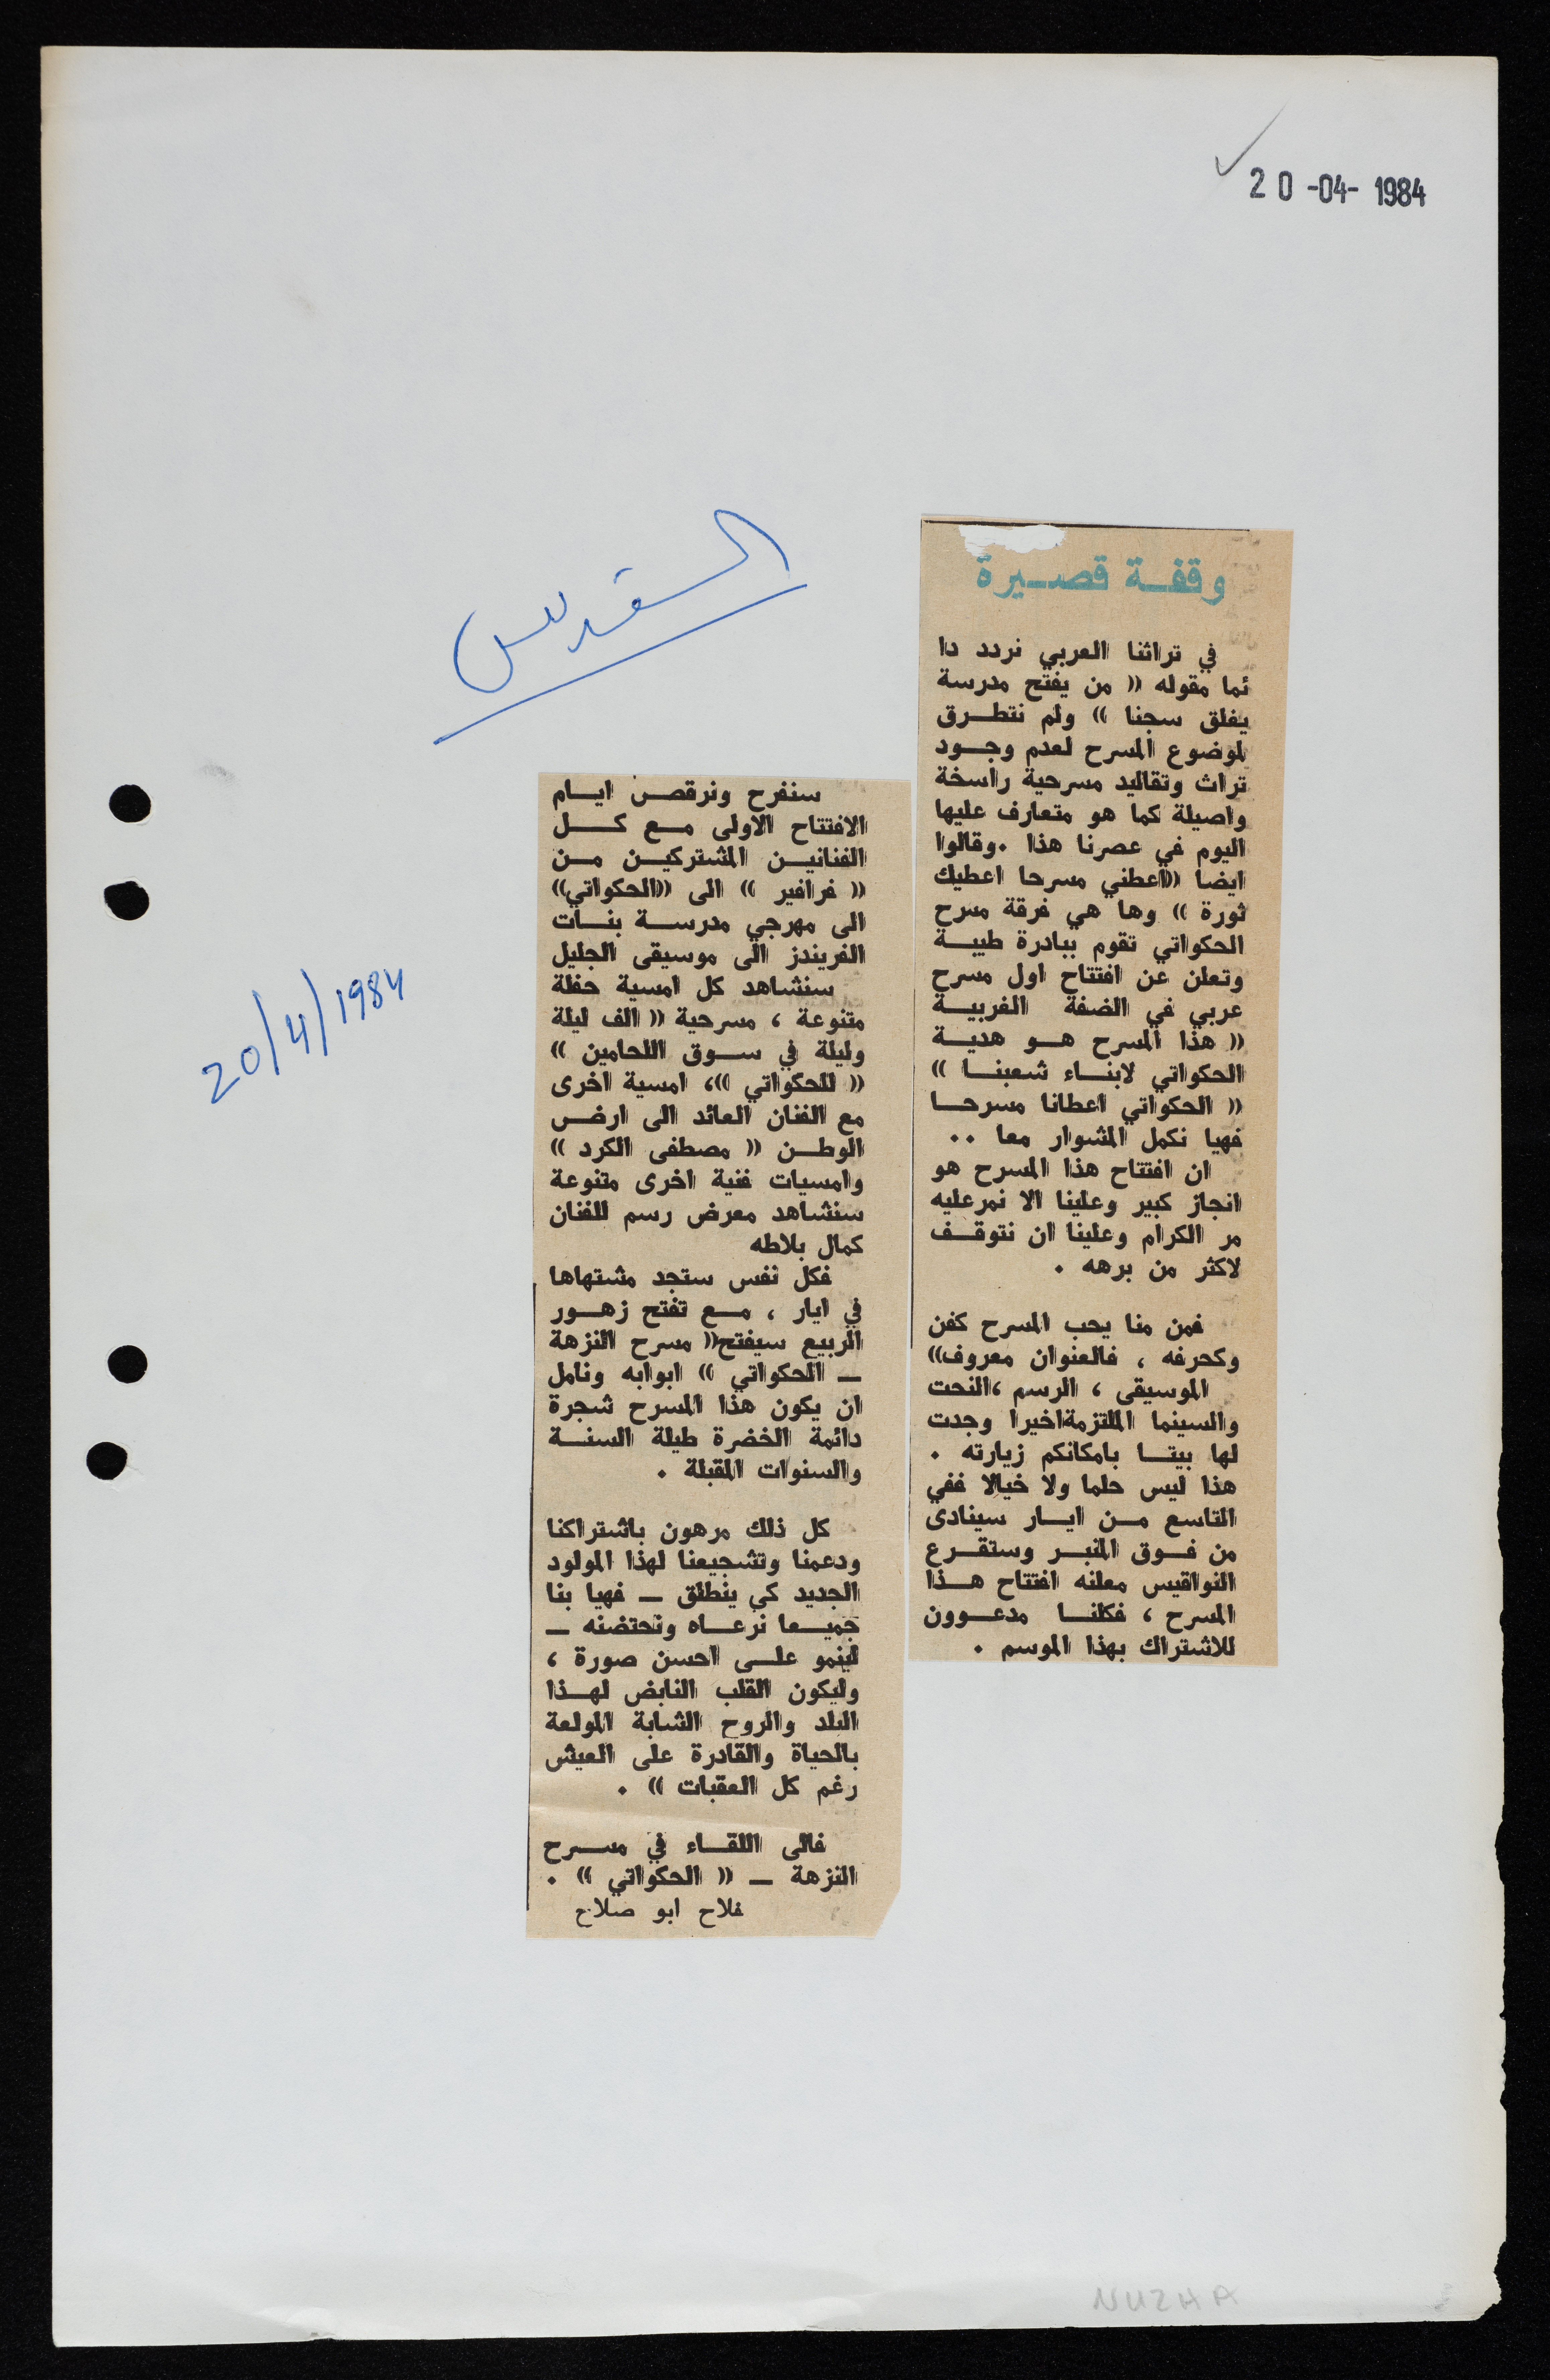 20-04-1984
القدس
20/4/1984
وقفة قصيرة
في تراثنا العربي نردد دا
ئما مقوله (( من يفتح مدرسة
يغلق سجنا )) ولم نتطرق
لموضوع المسرح لعدم وجود
تراث وتقاليد مسرحية راسخة
واصيلة كما هو متعارف عليها
اليوم في عصرنا هذا . وقالوا
ايضا ((اعطني مسرحا اعطيك
ثورة )) وها هي فرقة مسرح
الحكواتي تقوم ببادرة طيبة
وتعلن عن افتتاح اول مسرح
عربي في الضفة الغربية
(( هذا المسرح هو هدية
الحكواتي لابناء شعبنا ))
(( الحكواتي اعطانا مسرحا
فهيا نكمل المشوار معا ..
ان افتتاح هذا المسرح هو
انجاز كبير وعلينا الا نمر عليه
مر الكرام وعلينا ان نتوقف
لاكثر من برهه .
فمن منا يحب المسرح كفن
وكحرفه ، فالعنوان معروف))
الموسيقى ، الرسم ،النحت
والسينما الملتزمة اخيرا وجدت
لها بيتا بامكانكم زيارته .
هذا ليس حلما ولا خيالا ففي
التاسع من ايار سينادى
من فوق المنبر وستقرع
النواقيس معلنه افتتاح هذا
المسرح ، فكلنا مدعوون
للاشتراك بهذا الموسم .
سنفرح ونرقص ايام
الافتتاح الاولى مع كل
الفنانين المشتركين من
(( فرافير )) الى ((الحكواتي))
الى مهرجي مدرسة بنات
الفريندز الى موسيقى الجليل
سنشاهد كل امسية حفلة
متنوعة ، مسرحية (( الف ليلة
وليلة في سوق اللحامين ))
(( للحكواتي ))، امسية اخرى
مع الفنان العائد الى ارض
الوطن (( مصطفى الكرد ))
وامسيات فنية اخرى متنوعة
سنشاهد معرض رسم للفنان
كمال بلاطه
فكل نفس ستجد مشتهاها
في ايار ، مع تفتح زهور
الربيع سيفتح(( مسرح النزهة
ـ الحكواتي )) ابوابه ونامل
ان يكون هذا المسرح شجرة
دائمة الخضرة طيلة السنة
والسنوات المقبلة .
كل ذلك مرهون باشتراكنا
ودعمنا وتشجيعنا لهذا المولود
الجديد كي ينطلق ـ فهيا بنا
جميعا نرعاه ونحتضنه ـ
لينمو على احسن صورة ،
وليكون القلب النابض لهذا
البلد والروح الشابة المولعة
بالحياة والقادرة على العيش
رغم كل العقبات )) .
فالى اللقاء في مسرح
النزهة ـ (( الحكواتي )) .
فلاح ابو صلاح
NUZHA